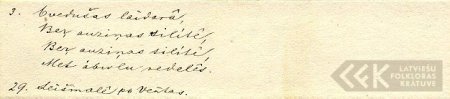 3. Evedušas laidarâ,
Bez auziņas silitê,
Bez auziņas silitê,
Met âbulu redelês.
29. Leišmalê po Ventas.
LATVIEŠU
FOLKLORAS
KRĀTUVE